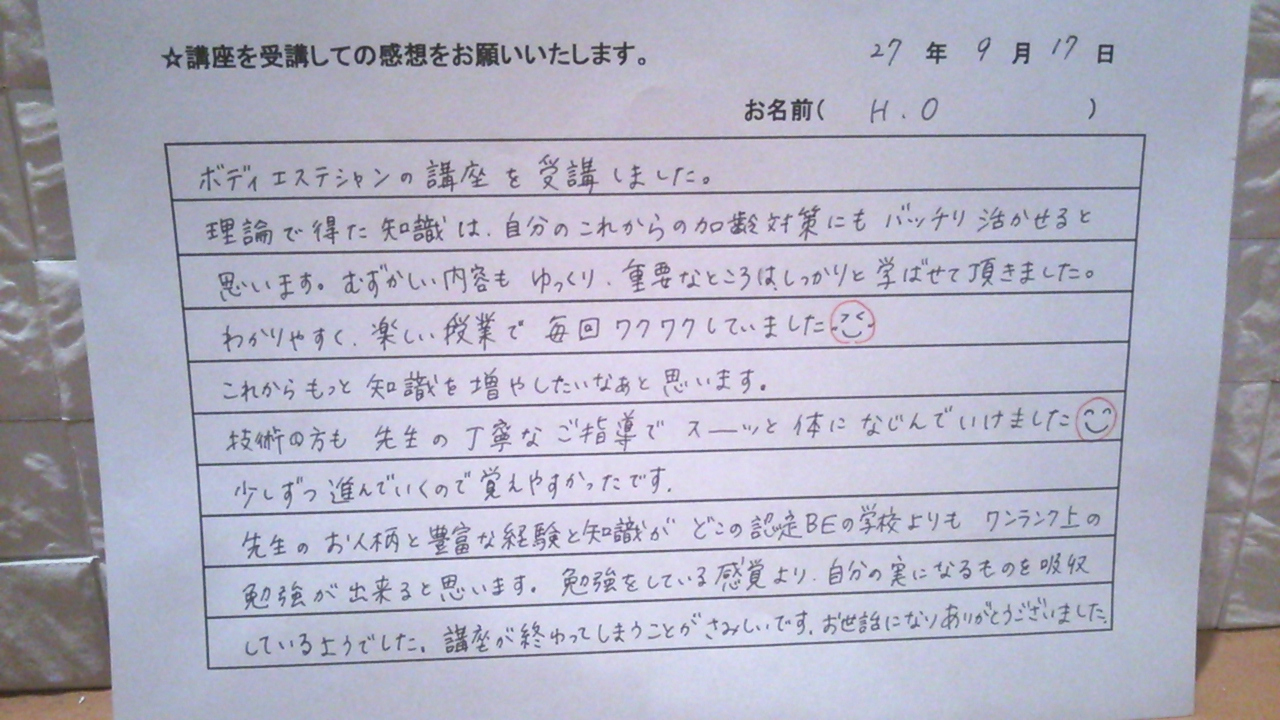 ☆講座を受講しての感想をお願いいたします。
27 年 9 月 17 日
お名前( H.O )
ボディエステシャンの講座を受講しました。
理論で得た知識は、自分のこれからの加齢対策にもバッチリ活かせると
思います。むずかしい内容もゆっくり、重要なところは、しっかりと学ばせて頂きました。
わかりやすく、楽しい授業で毎回ワクワクしていました
これからもっと知識を増やしたいなぁと思います。
技術の方も先生の丁寧なご指導でスーッと体になじんでいけました
少しずつ進んでいくので覚えやすかったです。
先生のお人柄と豊富な経験と知識がどこの認定BEの学校よりもワンランク上の
勉強が出来ると思います。勉強をしている感覚より、自分の実になるものを吸収
しているようでした。講座が終わってしまうことがさみしいです。お世話になりありがとうございました。